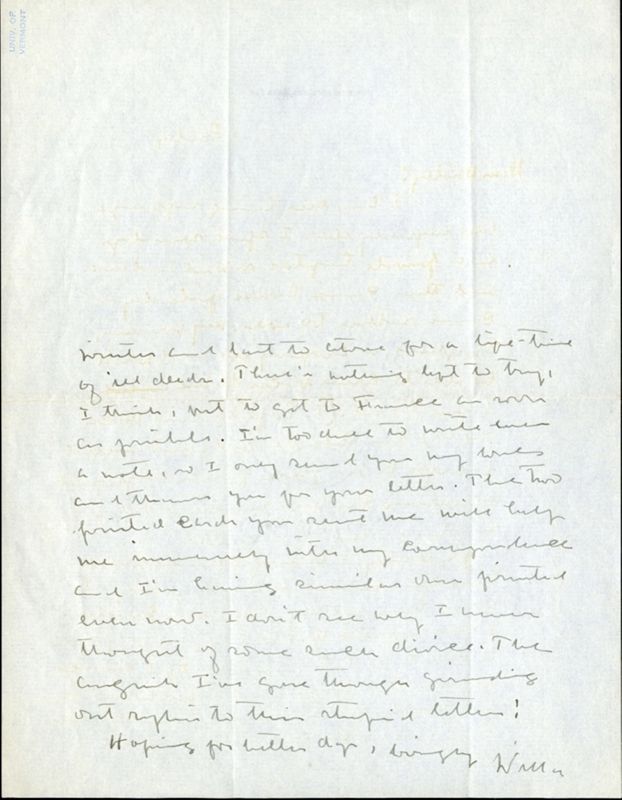 UNIV. OF
VERMONT
winter and last to atone for a life-time
of ill deeds. There's nothing left to try,
I think, but to get to France as soon
as possible. I'm too dull to write even
a note, so I only send you my love
and thank you for your letter. The two
printed cards you sent me will help
me immensely with my correspondence
and I'm having similar ones printed
even now. I don't see why I never
thought of some such device. The
anguish I've gone through grinding
out replies to this stupid letters!
Hoping for better days, lovingly
Willa